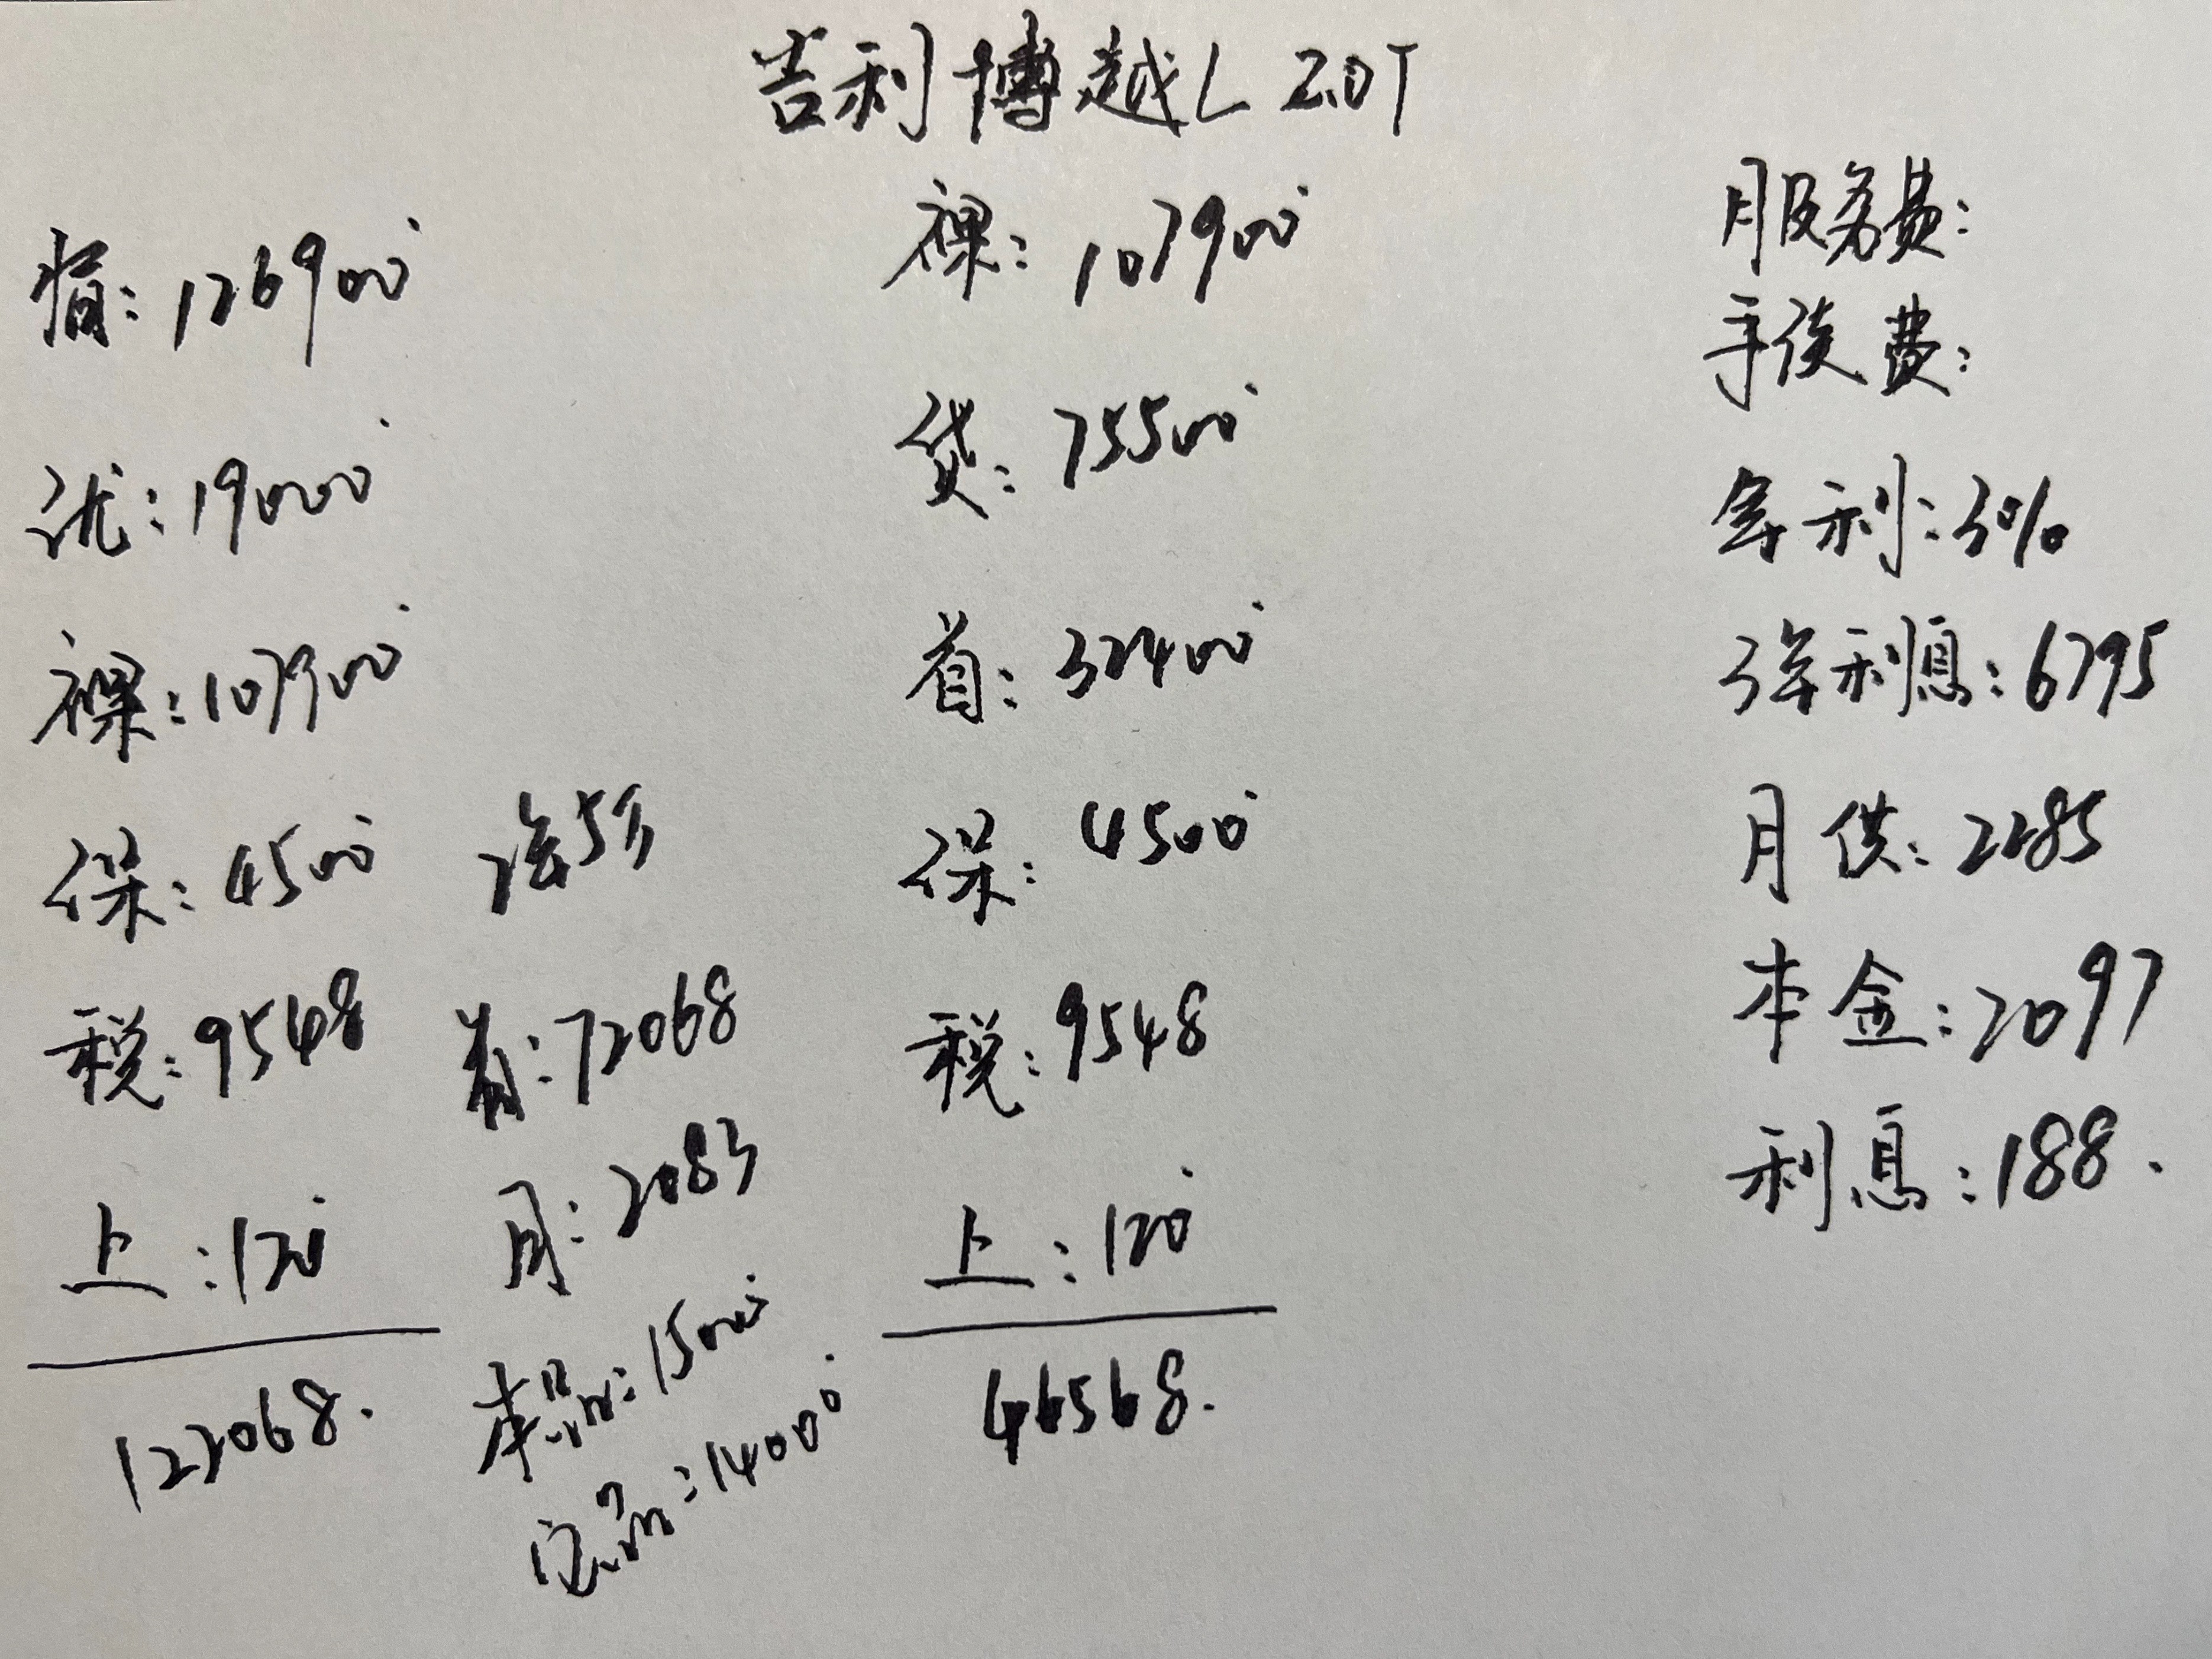 吉利博越L 2.0T
指:126900
优:19000
裸:107900
保:4500
税:9548
上:120
122068.
2年5万
首:72068
月:2083
本品:15000
:14000
裸:107900
贷:75500
首:32400
保:4500
税:9548
上:120
46568.
服务费:
手续费:
年利:3%
3年利息:6795
月供:2285
本金:2097
利息:188.